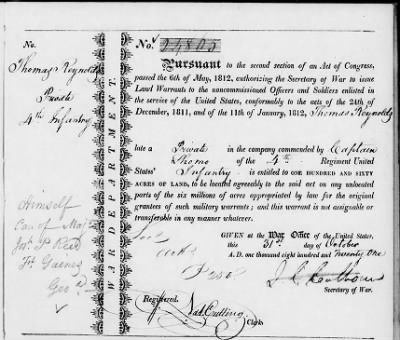 No.
Thomas Reynolds
Private
4th Infantry
Himself
Care of Maj.
Jno. P. Reed
Ft. Gaines
Geo.
WAR DEPARTMENT.
No. 24805
Pursuant to the second section of an Act of Congress,
passed the 6th of May, 1812, authorizing the Secretary of War to issue
Land Warrants to the noncommissioned Officers and Soldiers enlisted in
the service of the United States, conformably to the acts of the 24th of
December, 1811, and of the 11th of January, 1812, Thomas Reynolds
late a Private in the company commanded by Captain
of the 4th Regiment United
States' Infantry is entitled to ONE HUNDRED AND SIXTY
ACRES OF LAND, to be located agreeably to the said act on any unlocated
parts of the six millions of acres appropriated by law for the original
grantees of such military warrants; and this warrant is not assignable or
transferable in any manner whatever.
GIVEN at the War Office of the United States,
this 31st day of October
A. D. one thousand eight hundred and Twenty One
J. C. Calhoun
Secretary of War.
Registered. Nat Cutting
Clerk